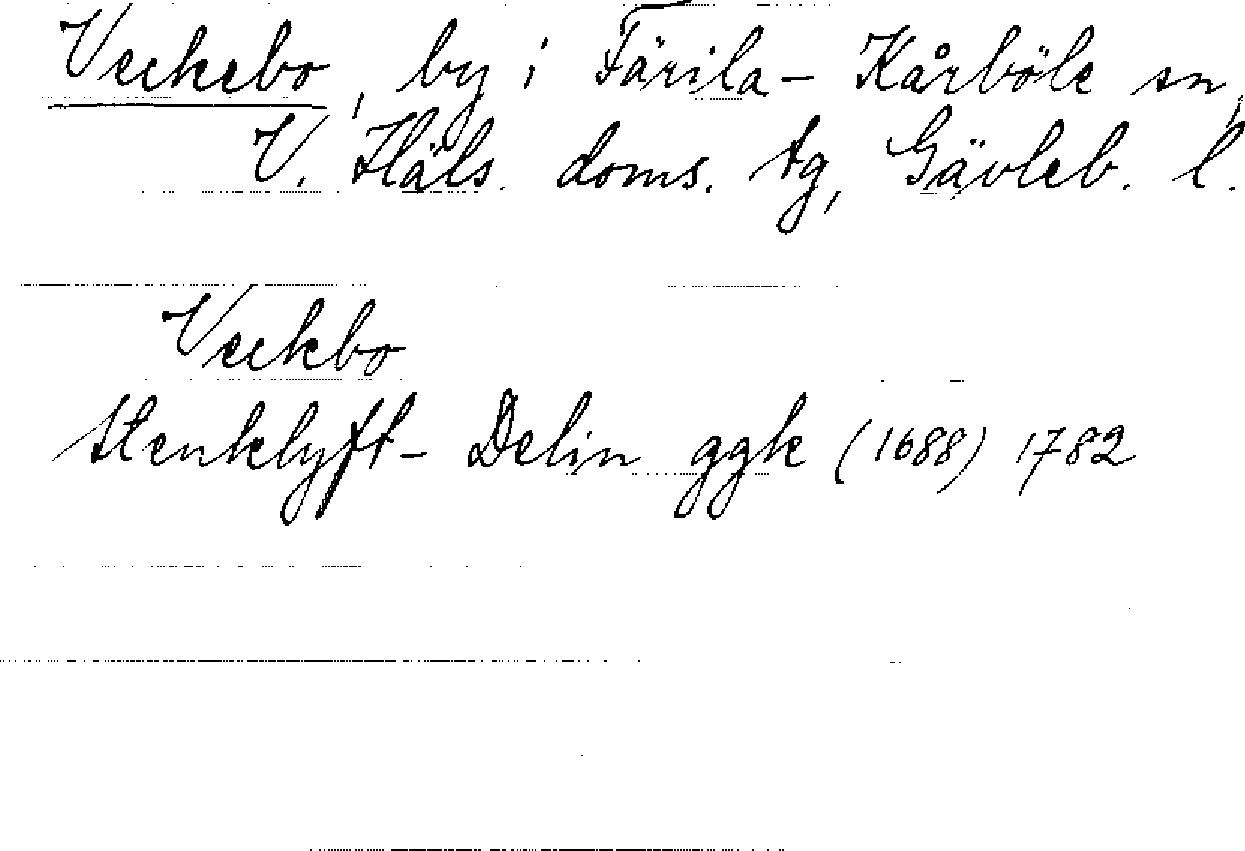 Veckebo, by i Färila-Kårböle sn,
V. Häls. doms. tg, Gävleb. l.
Veckbo
Stenklyft- Delin ggk (1688) 1782